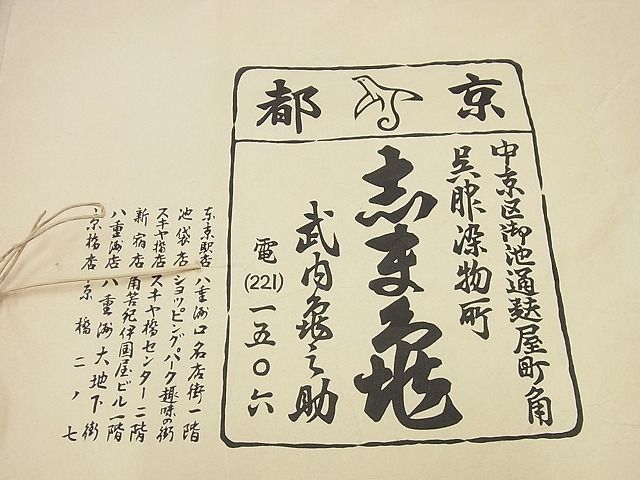 京都
中京区御池通麩屋町角
呉服染物所
志ま亀
武内亀之助
電(221)一五〇六
東京駅店 八重洲口名店街一階
池袋店 ショッピング。パーク趣味の街
スキヤ橋店 スキヤ橋センター二階
新宿店 角筈紀伊國屋ビル一階
八重洲店 八重洲大地下街
京橋店 京橋二ノ七